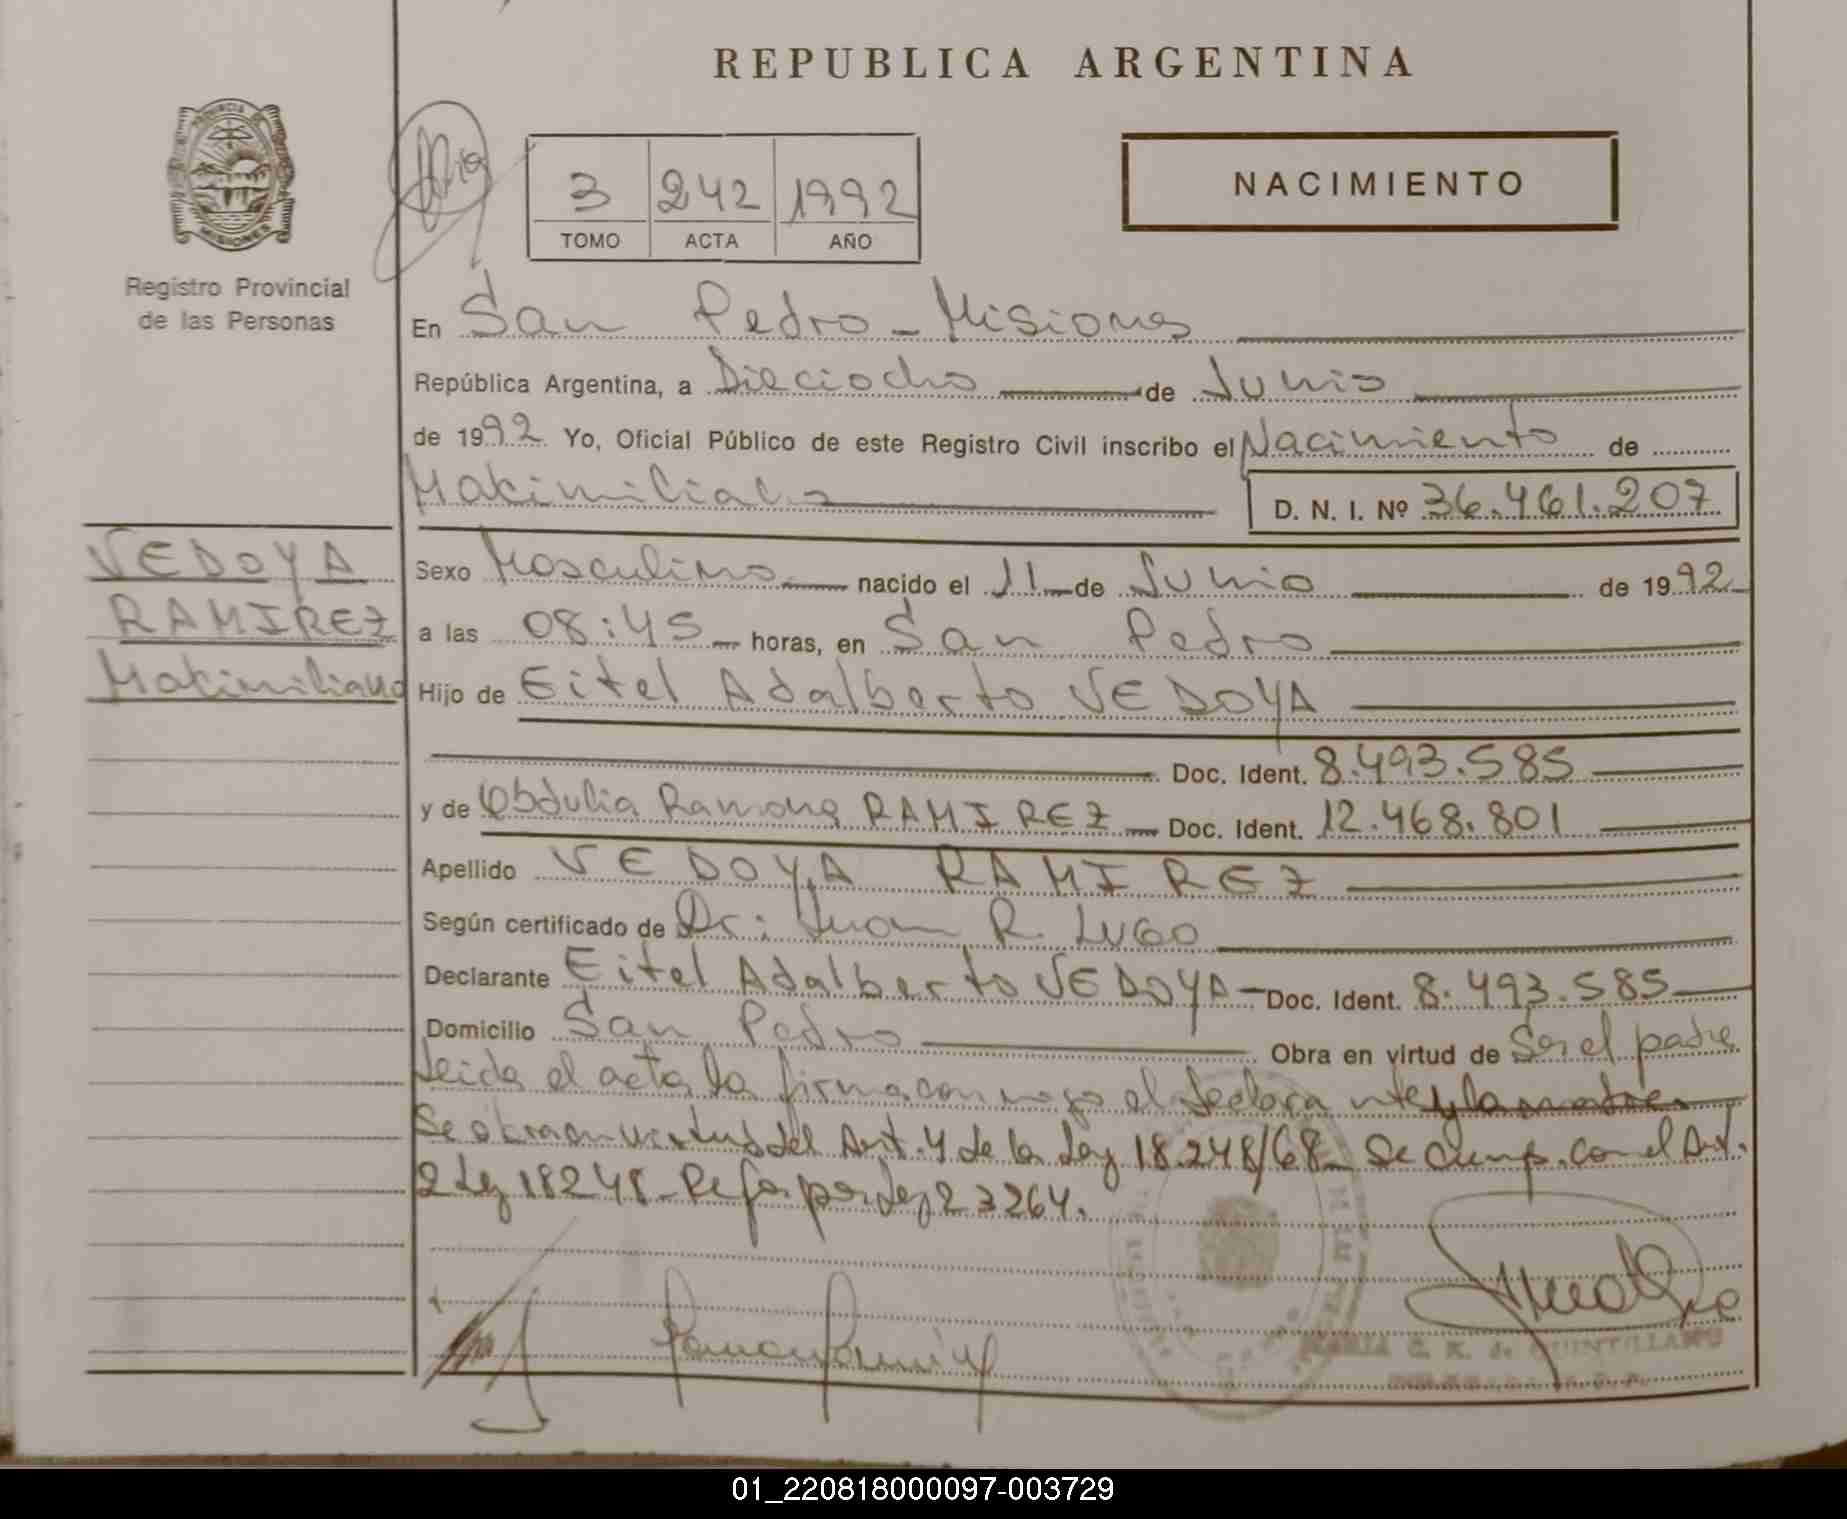 REPUBLICA ARGENTINA
PROVINCIA DE
MISIONES
Registro Provincial
de las Personas
3 242 1992
TOMO ACTA AÑO
NACIMIENTO
En San Pedro - Misiones
República Argentina, a Dieciocho de Junio
de 1992 Yo, Oficial Público de este Registro Civil inscribo el Nacimiento de
Makimiliano
D. N. I. Nº 36.461.207
VEDOYA
RAMIREZ
Makimiliano
Sexo Masculino nacido el 11 de Junio de 1992
a las 08:45 horas, en San Pedro
Hijo de Eitel Adalberto VEDOYA
Doc. Ident. 8.493.585
y de Obdulia Ramona RAMIREZ Doc. Ident. 12.468.801
Apellido VEDOYA RAMIREZ
Según certificado de Dr: Juan R. LUGO
Declarante Eitel Adalberto VEDOYA - Doc. Ident. 8.493.585
Domicilio San Pedro Obra en virtud de Ser el padre
Leida el acta la firma conmigo el declarante y la madre
Se obra en virtud del Art. 4 de la Ley 18.248/68 - Se cump. con el Art.
2 Ley 18248 - Ref. por Ley 23264.
MARIA G. K. de QUINTILLANO
01_220818000097-003729